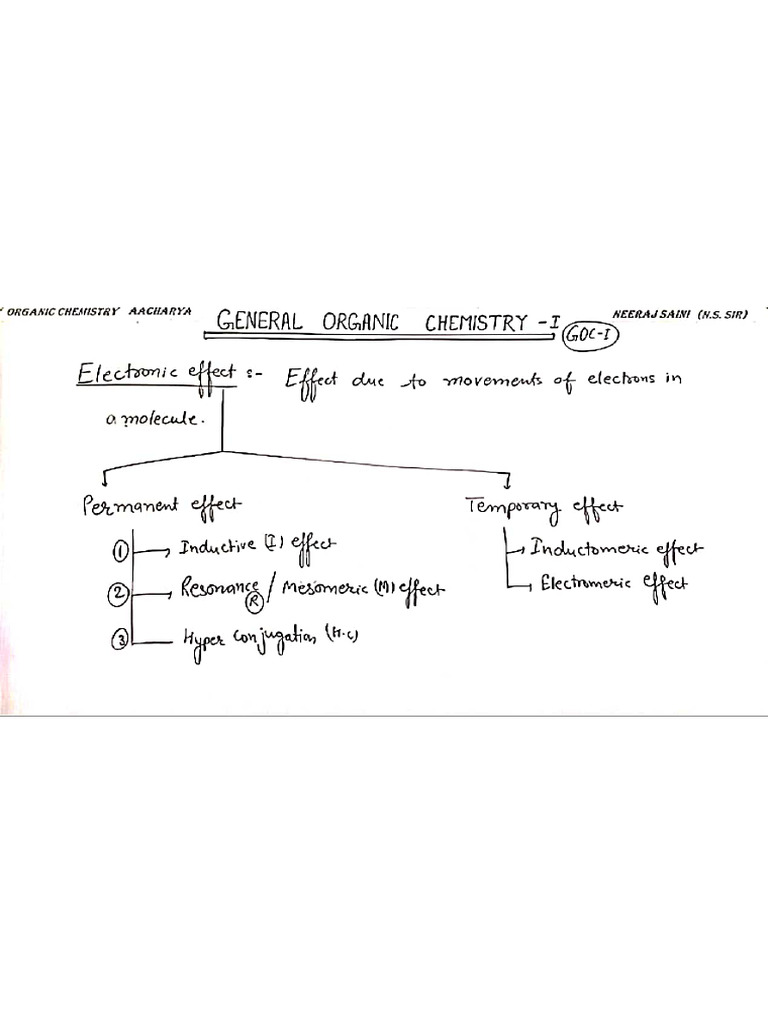 ORGANIC CHEMISTRY AACHARYA
GENERAL ORGANIC CHEMISTRY - I
NEERAJ SAINI (N.S. SIR)
GOC-I
Electronic effect :- Effect due to movements of electrons in
a molecule.
Permanent effect
① Inductive (I) effect
② Resonance / Mesomeric (M) effect
Ⓡ
③ Hyper conjugation (H.C)
Temporary effect
Inductomeric effect
Electromeric effect